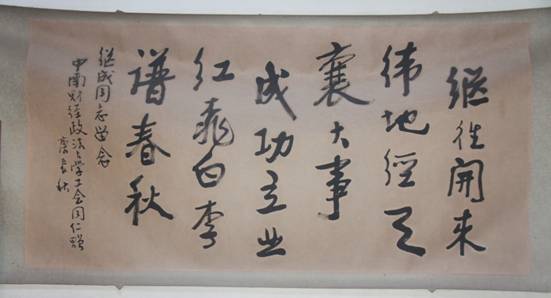 继往開来
纬地經天
襄大事
成功立业
红桃白李
谱春秋
继成同志念
中南财经政法大学工会同仁赠